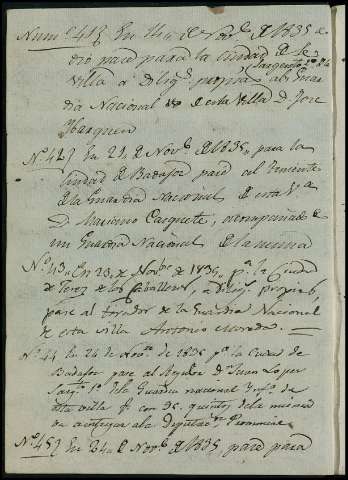 Num.º 41 En 14 de Nov.e de 1835 se
dio pase para la ciudad de Se
villa a Dilig.s propias al Sargento 1.º de la Guar
dia Nacional de esta Villa D. Jose
Marquez
N.º 42 En 21 de Nov.e de 1835 para la
Ciudad de Badajoz pase al Teniente
de la Guardia Nacional de esta V.a
D. Mariano Caquete, acompañado de
un Guardia Nacional de la misma
N.º 43 En 23, de Nov.bre de 1835, p.a la Ciudad
de Jerez de los Caballeros, a Dilig.s propias,
pase al tirador de la Guardia Nacional
de esta villa Antonio
N.º 44 En 24 de Nov.re de 1835 p.a la Ciudad de
Badajoz pase al D.n Juan Lopez
Sarg.to 1.º de la Guardia nacional
esta villa con 35 quintos de la misma
a entregar a la Diputac.n Provincial
N.º 45 En 24 de Nov.e de 1835, pase para